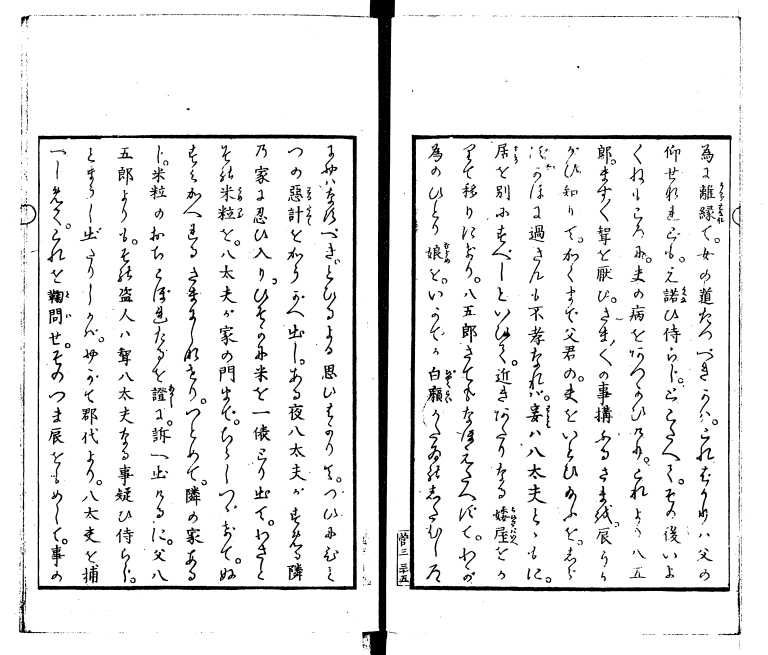 為に離縁て。女の道たつべきかハ。これハ父の
仰せなれども。え諾ひ侍らじ。とこたへて。その後いよ
くねもころに。夫の病をあつかひけり。これより八五
郎。ますく聟を厭ひ。さまくの事構ふるさまを。辰うか
がひ知りて。かくまで父君の。夫をいとひ給ふを。しら
ずがほに過さんも不孝なれバ。妾ハ八太夫とゝもに。
居を別にすべしといひて。近きあたりなる矮屋をか
りて移りにけり。八五郎さてもなほえたへずて。わが
為のひとり娘を。いかでか白癩
三 三十五
ハなすべき。とひるよる思ひ
つの惡計をかうがへ出し。ある夜八太夫がすめる隣
の家に忍ひ入り。ひそかに米を一俵とり出て。わざと
その米粒を。八太夫が家の門まで。ちらしつゝおきて。ぬ
すみかへれるさまにしなせり。つとめて。隣の家ある
じ。米粒のおちこぼれたるを證に。訴へ出けるに。父八
五郎よりも。その盗人ハ聟八太夫なる事疑ひ侍らじ。
とまうし出たりしかバ。やがて郡代より。八太夫を捕
へしめて。これを鞠問せ。そのつま辰をもめして。事の